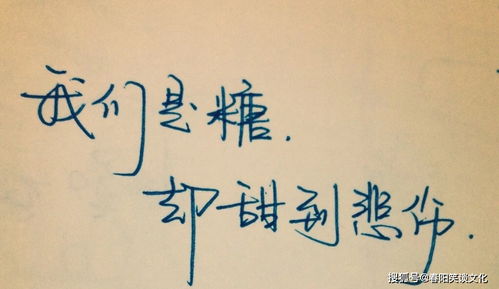 我们是糖.
却甜到悲伤.
搜狐号@春阳笑锁文化